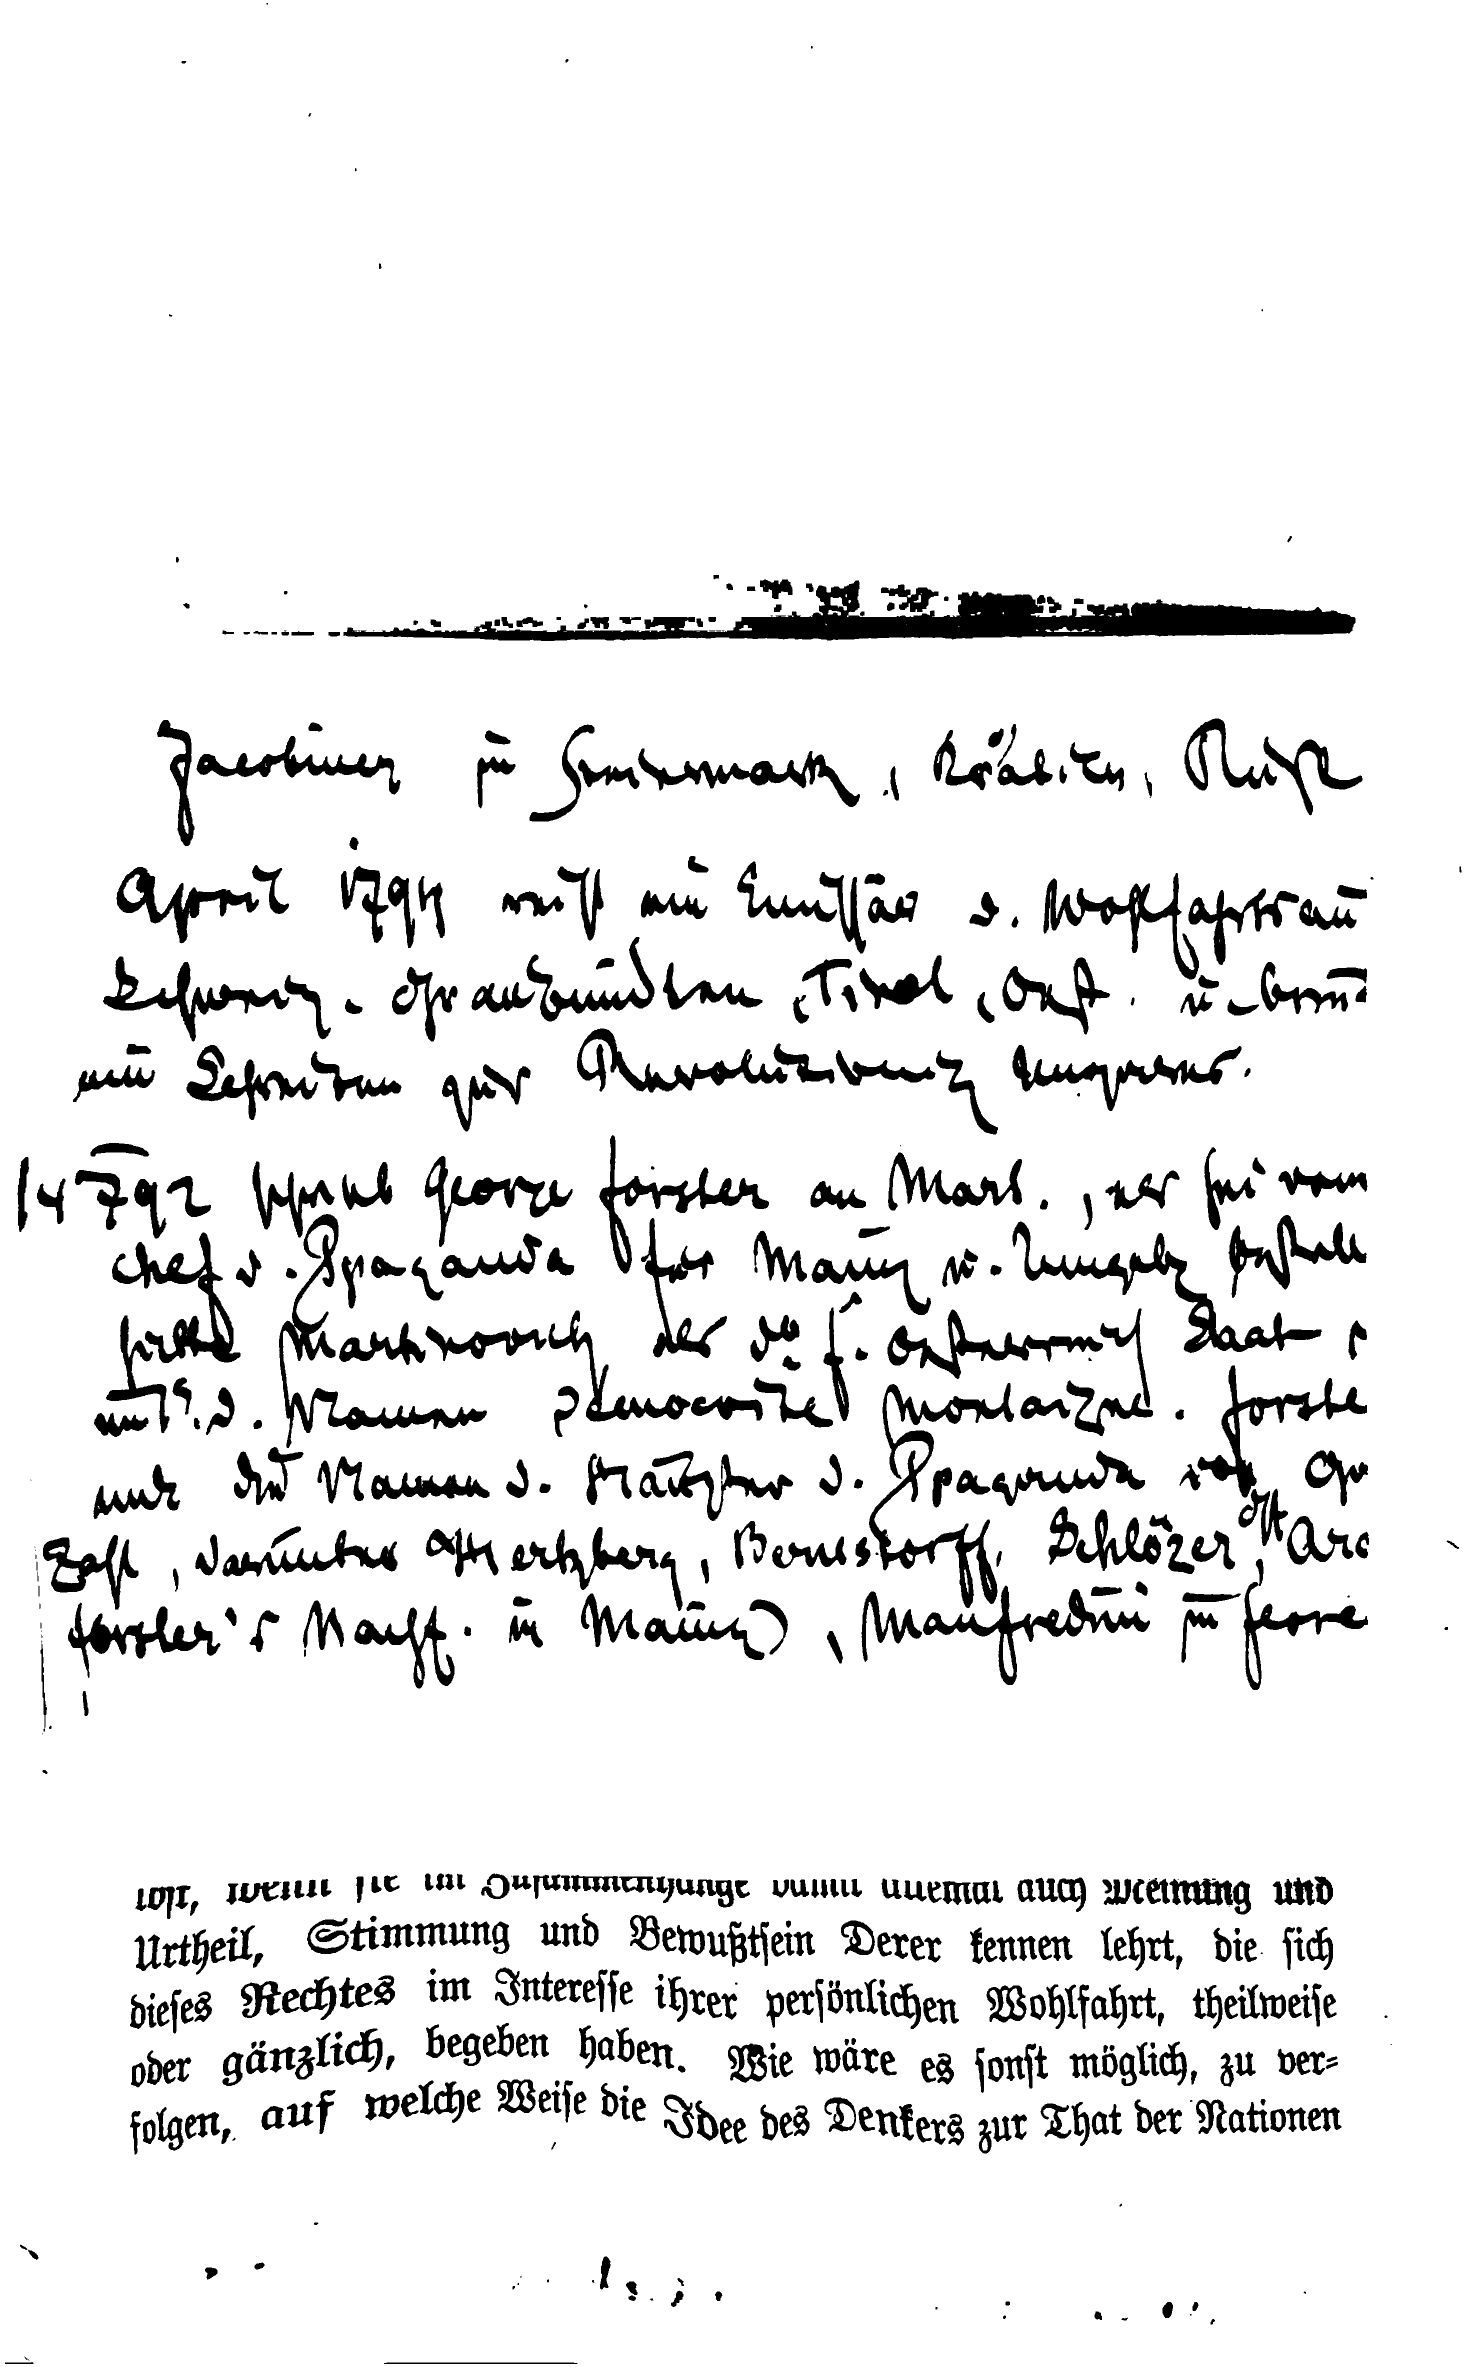 Jacobiner in Steiermark,
April 1794 reist ein Emissär d. Wohlfahrtsau
Schweiz. Graubündten, Tirol, Oest. u.
ein Schreiben zur Revolutionirg Ungarns.
792 schrieb George Forster an Mart., er sei vom
Chef d. Ppaganda für Mainz u. Umgebg bestellt
Martinovich der Oesterreich Staat
d. Namen Democrite Montaigne. Forste
die Namen d. Häupter d. Ppaganda von
Zahl, darunter Hertzberg, Bernstorff, Schlözer,
Forster's Nachf. in Mainz), Manfredini in
ist, wenn sie im Zusammenhange damit allemal auch Meinung und
Urtheil, Stimmung und Bewußtsein Derer kennen lehrt, die sich
dieses Rechtes im Interesse ihrer persönlichen Wohlfahrt, theilweise
oder gänzlich, begeben haben. Wie wäre es sonst möglich, zu ver-
folgen, auf welche Weise die Idee des Denkers zur That der Nationen